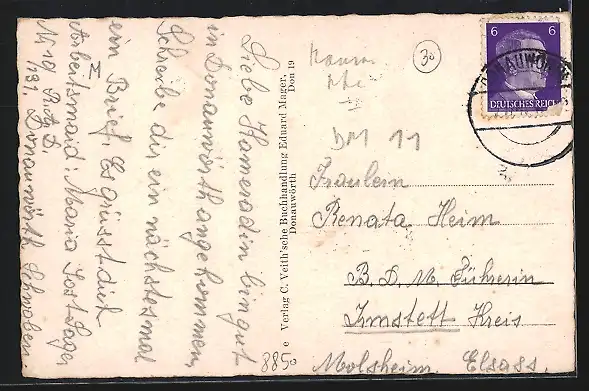 Liebe Kameradin bin gut
in Donauwörth angekommen,
Schreibe dir ein nächstesmal
ein Brief. Es grüsst dich
Arbeitsmaid: Maria Jost Lager
Donauwörth Schwaben
e Verlag C. Veith'sche Buchhandlung Eduard Mager,
Donauwörth
Don 19
885
30
6 6
DEUTSCHES REICH
DM 11
Fräulein
Renata Heim
B. D. M. Führerin
Irmstett Kreis
Molsheim Elsass.